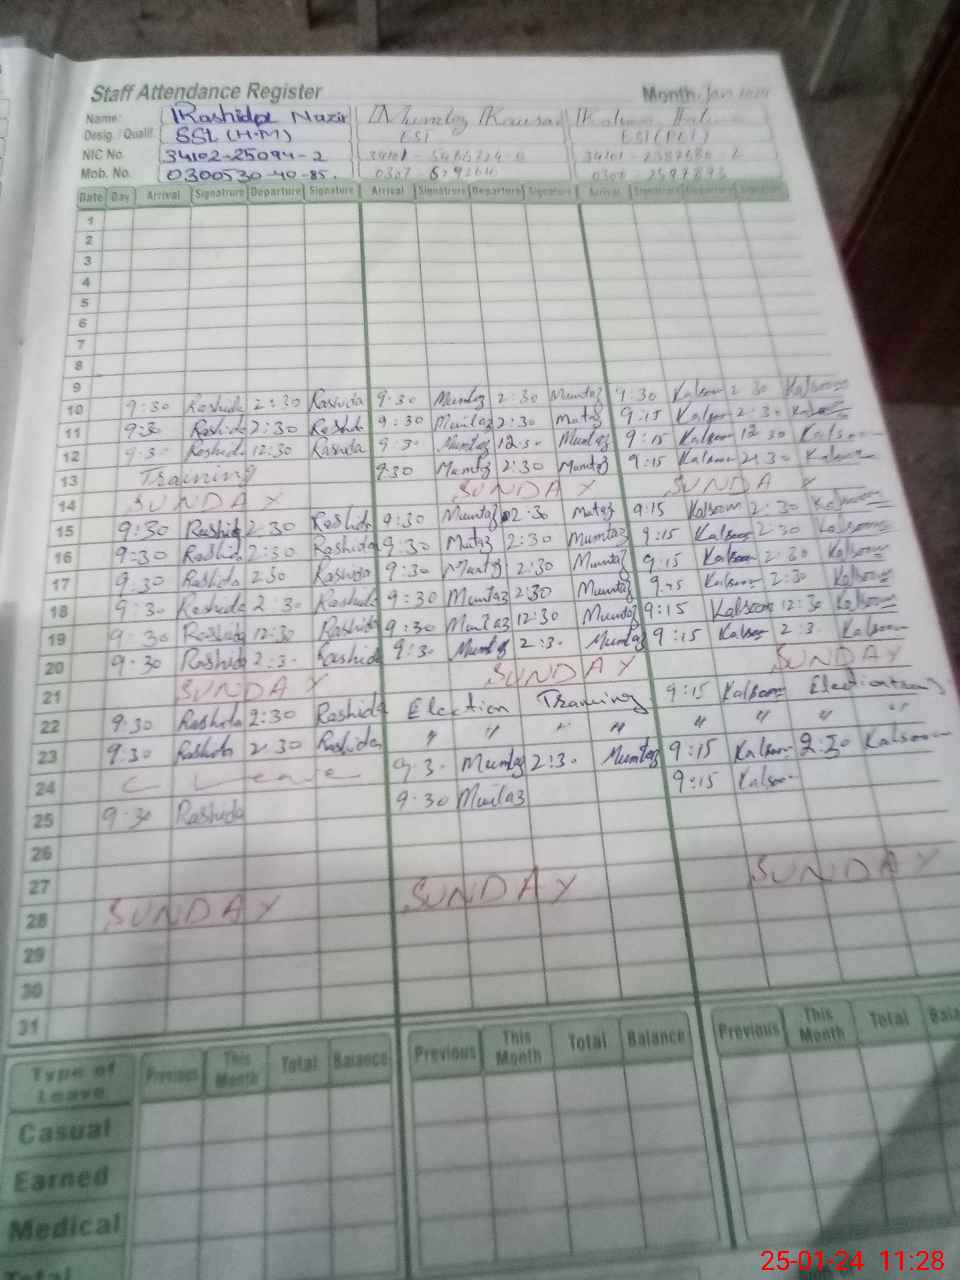 Staff Attendance Register Month Jan 2024
Name: Rashida Nazir Mumtaz Kausar Kalsoom
Desig. / Qualif. SSI (H-M) EST EST (PET)
NIC No. 34102-25094-2 34101 34101
Mob. No. 0300530-40-85. 0307 0300
Date Day Arrival Signature Departure Signature Arrival Signature Departure Signature Arrival Signature Departure Signature
1
2
3
4
5
6
7
8
9
10 9:30 Rashida 2:30 Rashida 9:30 Mumtaz 2:30 Mumtaz 9:30 Kalsoom 2:30 Kalsoom
11 9:30 Rashida 2:30 Rashida 9:30 Mumtaz 2:30 Mumtaz 9:15 Kalsoom 2:30 Kalsoom
12 9:30 Rashida 12:30 Rashida 9:30 Mumtaz 12:30 Mumtaz 9:15 Kalsoom 12:30 Kalsoom
13 Training 9:30 Mumtaz 2:30 Mumtaz 9:15 Kalsoom 2:30 Kalsoom
14 SUNDAY SUNDAY SUNDAY
15 9:30 Rashida 2:30 Rashida 9:30 Mumtaz 2:30 Mumtaz 9:15 Kalsoom 2:30 Kalsoom
16 9:30 Rashida 2:30 Rashida 9:30 Mumtaz 2:30 Mumtaz 9:15 Kalsoom 2:30 Kalsoom
17 9:30 Rashida 2:30 Rashida 9:30 Mumtaz 2:30 Mumtaz 9:15 Kalsoom 2:30 Kalsoom
18 9:30 Rashida 2:30 Rashida 9:30 Mumtaz 2:30 Mumtaz 9:15 Kalsoom 2:30 Kalsoom
19 9:30 Rashida 12:30 Rashida 9:30 Mumtaz 12:30 Mumtaz 9:15 Kalsoom 12:30 Kalsoom
20 9:30 Rashida 2:30 Rashida 9:30 Mumtaz 2:30 Mumtaz 9:15 Kalsoom 2:30 Kalsoom
21 SUNDAY SUNDAY SUNDAY
22 9:30 Rashida 2:30 Rashida Election Training 9:15 Kalsoom Election training
23 9:30 Rashida 2:30 Rashida " " " " " " " "
24 C Leave 9:30 Mumtaz 2:30 Mumtaz 9:15 Kalsoom 2:30 Kalsoom
25 9:30 Rashida 9:30 Mumtaz 9:15 Kalsoom
26
27
28 SUNDAY SUNDAY SUNDAY
29
30
31
Type of Leave Previous This Month Total Balance Previous This Month Total Balance Previous This Month Total Bala
Casual
Earned
Medical
Total
25-01-24 11:28